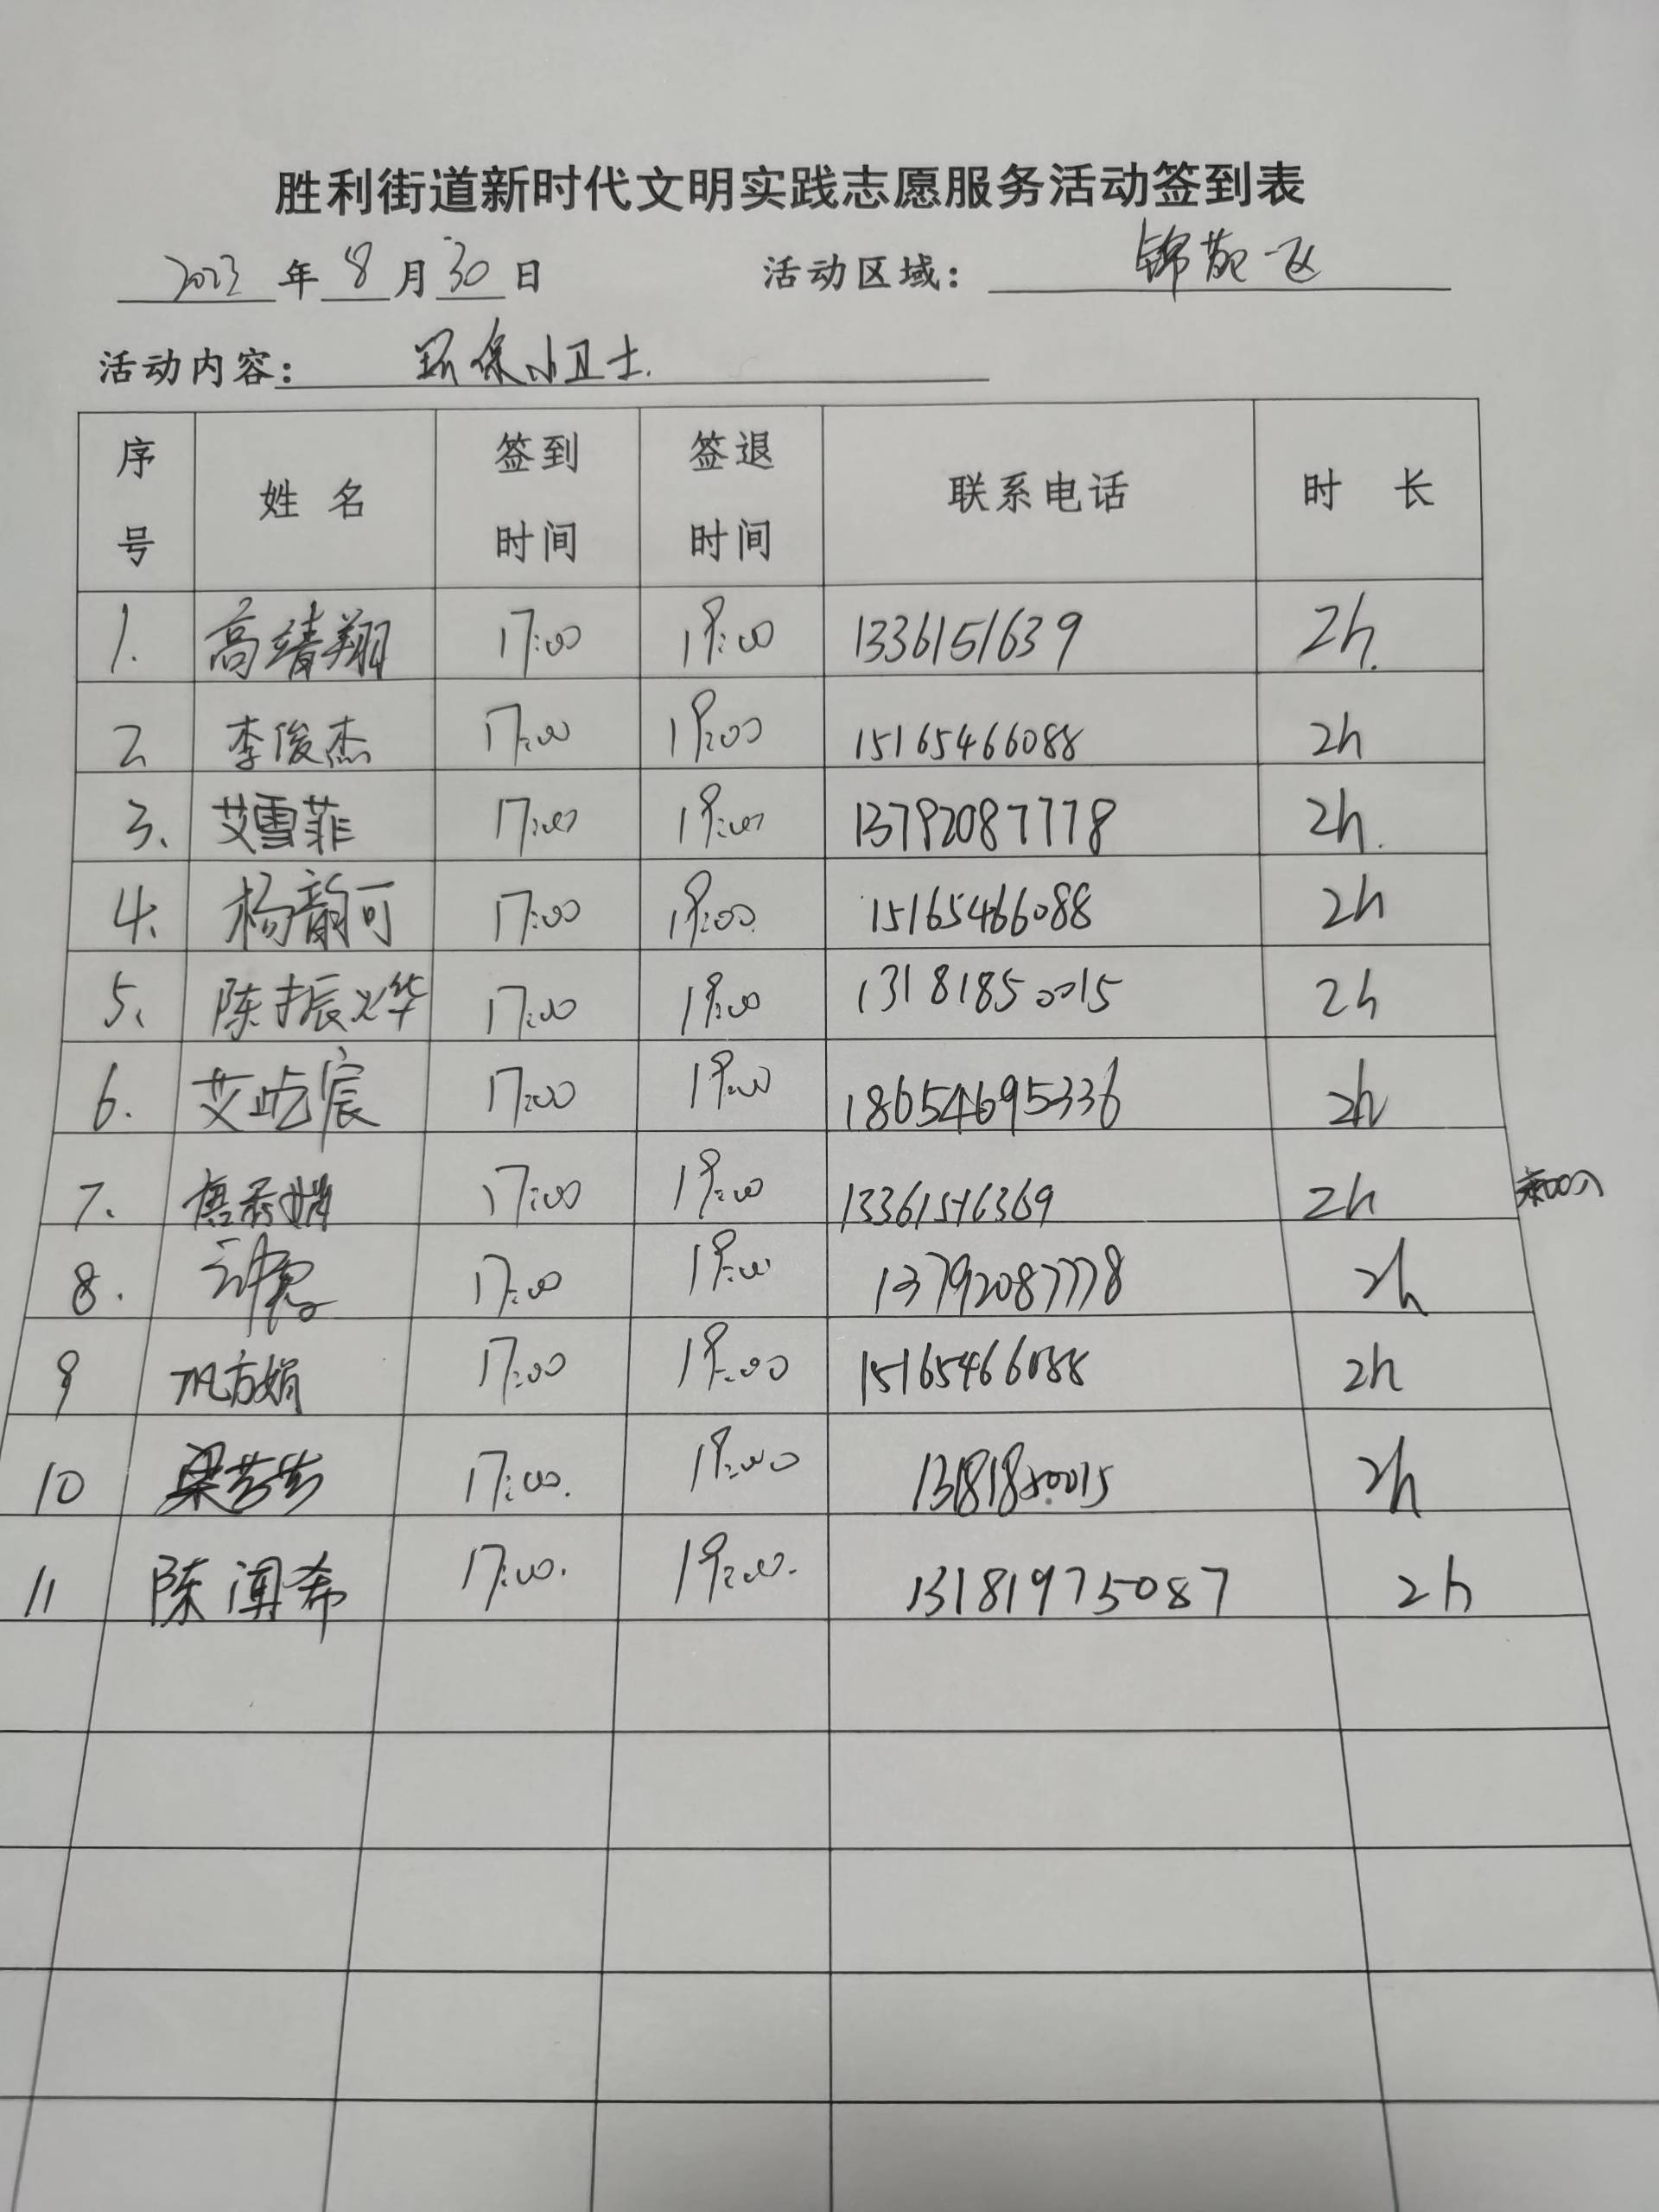 胜利街道新时代文明实践志愿服务活动签到表
2023年8月30日 活动区域：锦苑一区
活动内容：环保小卫士.
序号 姓名 签到时间 签退时间 联系电话 时 长
1. 高靖翔 17:00 19:00 1336151639 2h.
2 李俊杰 17:00 19:00 15165466088 2h
3、 艾雪菲 17:00 19:00 13792087778 2h.
4、 杨韵可 17:00 19:00 15165466088 2h
5、 陈振烨 17:00 19:00 13181850015 2h
6. 艾屹宸 17:00 19:00 18654695336 2h
7. 17:00 19:00 13361546369 2h
8. 17:00 19:00 13792087778 2h
9 巩方娟 17:00 19:00 15165466088 2h
10 梁芸芸 17:00. 19:00 13181850015 2h
11 陈闻希 17:00. 19:00. 13181975087 2h